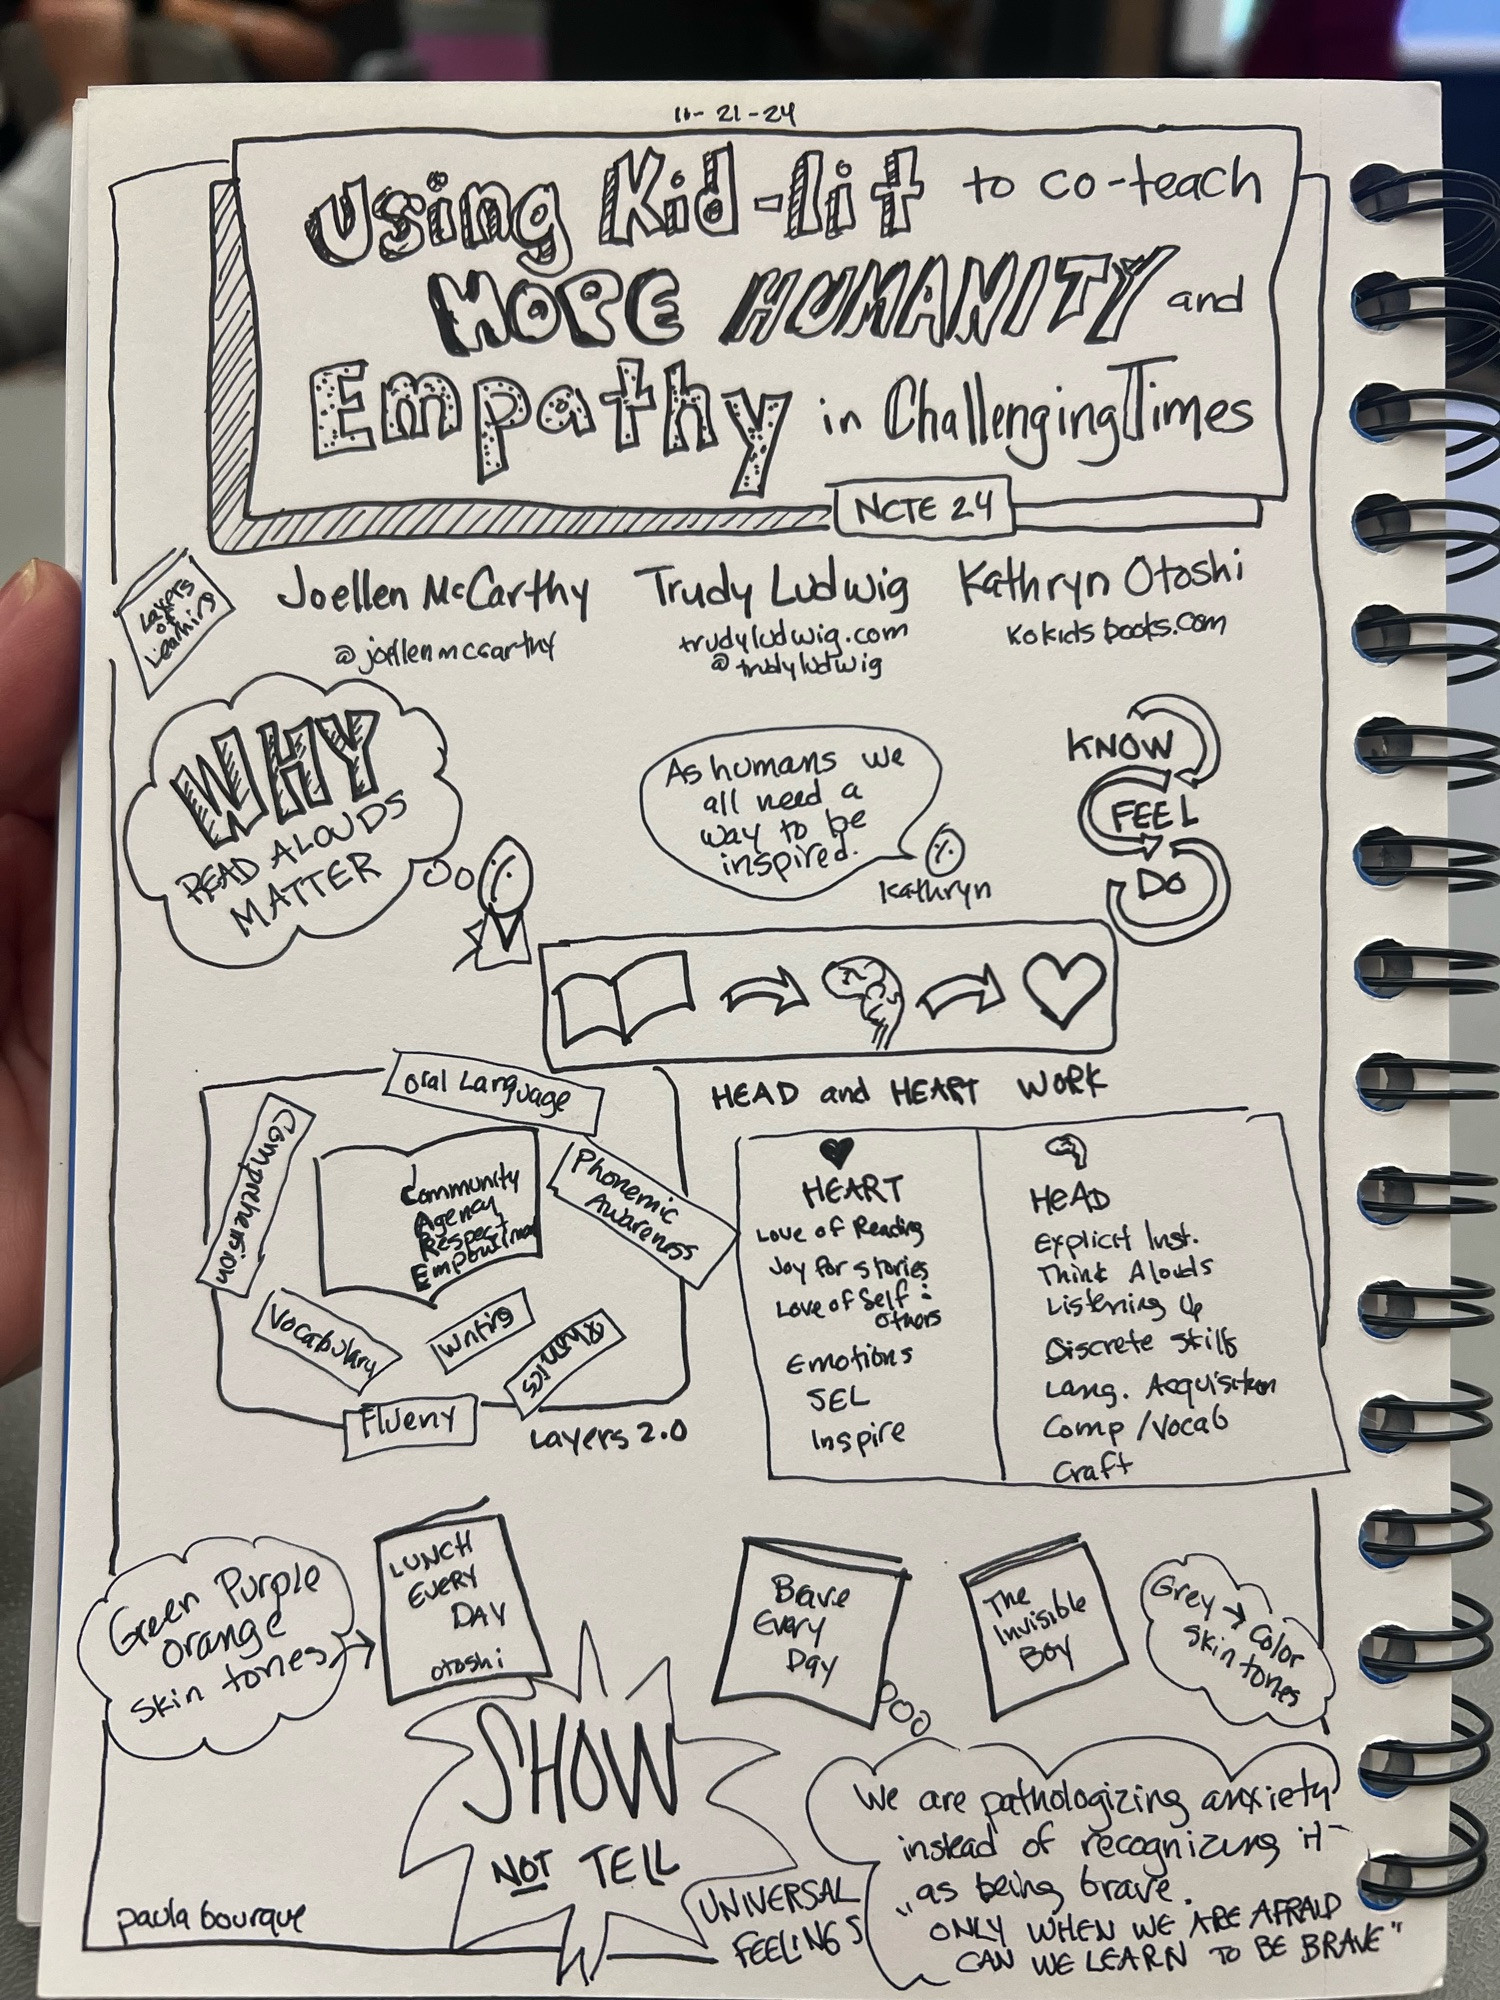 11-21-24
Using Kid-lit to co-teach
HOPE HUMANITY and
Empathy in Challenging Times
NCTE 24
Layers
of
Learning
Joellen McCarthy
@joellenmccarthy
Trudy Ludwig
trudyludwig.com
@trudyludwig
Kathryn Otoshi
kokidsbooks.com
WHY
READ ALOUDS
MATTER
As humans we
all need a
way to be
inspired.
Kathryn
KNOW
FEEL
DO
Oral Language
Comprehension
Community
Agency
Respect
Phonemic
Awareness
Vocabulary
Writing
Flueny
Layers 2.0
HEAD and HEART WORK
HEART
Love of Reading
Joy for stories
Love of Self :
others
Emotions
SEL
Inspire
HEAD
Explicit Inst.
Think Alouds
Listening Up
Discrete skills
Lang. Acquisition
Comp/Vocab
Craft
Green Purple
orange
skin tones
LUNCH
EVERY
DAY
otoshi
Brave
Every
Day
The
Invisible
Boy
Grey → Color
skin tones
SHOW
NOT TELL
UNIVERSAL
FEELINGS
We are pathologizing anxiety
instead of recognizing it
as being brave.
"ONLY WHEN WE ARE AFRAID
CAN WE LEARN TO BE BRAVE"
paula bourque